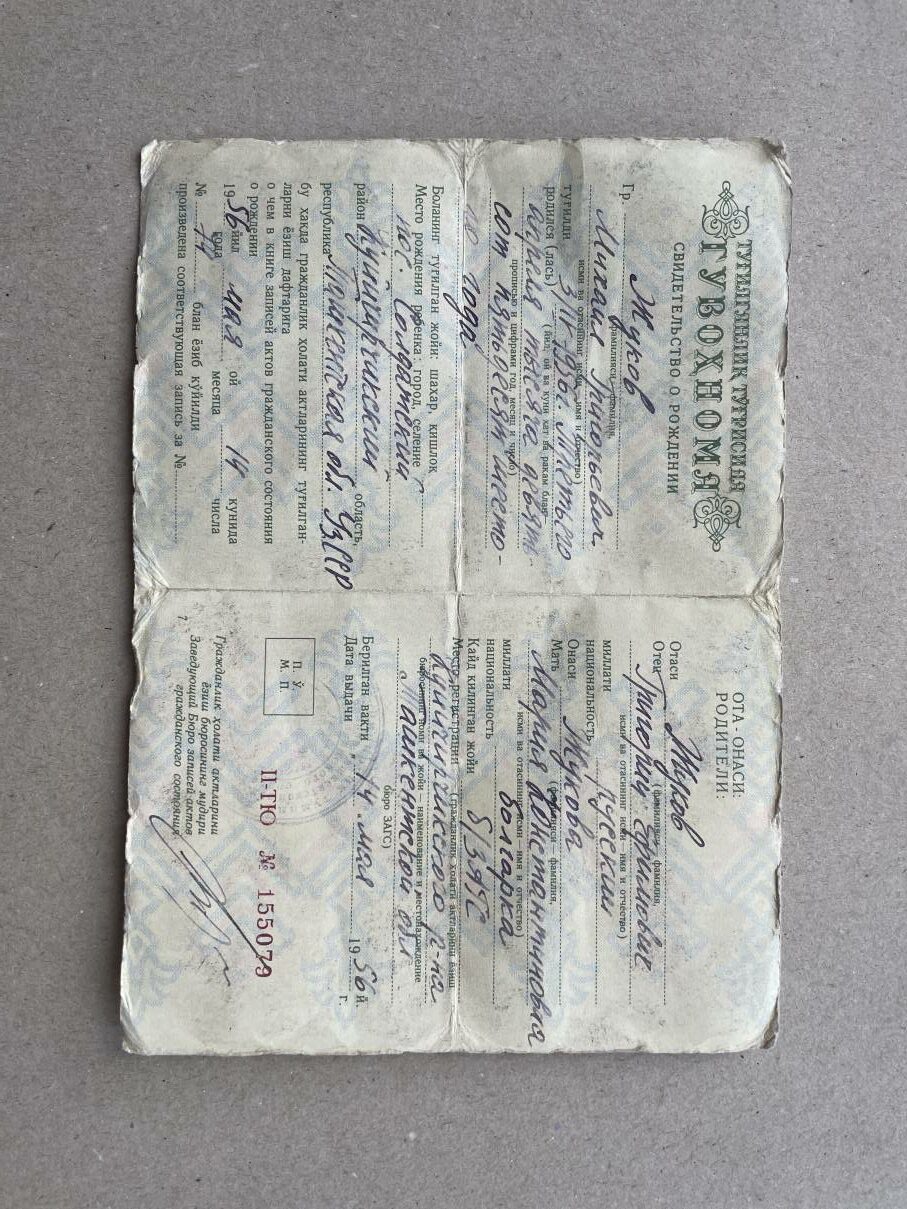 ТУҒИЛГАНЛИК ТЎҒРИСИДА
ГУВОХНОМА
СВИДЕТЕЛЬСТВО О РОЖДЕНИИ
Гр. Жуков
фамилияси — фамилия,
Михаил Григорьевич
исми ва отасининг исми — имя и отчество)
туғилди
родился (лась) 3/IV-1956г. Третьего
(йил, ой ва куни хат ва рақам билан
апреля тысяча девять-
прописью и цифрами год, месяц и число)
сот пятьдесят шесто-
го года
Боланинг туғилган жойи: шаҳар, қишлоқ
Место рождения ребенка: город, селение
пос. Солдатский
район Куйичирчикский область,
республика Ташкентская об. УзССР
бу ҳақда гражданлик ҳолати актларининг туғилган-
ларни ёзиш дафтарига
о чем в книге записей актов гражданского состояния
о рождении
1956 йил года мая ой месяца 14 кунида числа
№ 44 блан ёзиб қўйилди
произведена соответствующая запись за №
ОТА-ОНАСИ:
РОДИТЕЛИ:
Отаси
Отец Жуков
(фамилияси — фамилия,
Григорий Ефимович
исми ва отасининг исми — имя и отчество)
миллати
национальность русский
Онаси
Мать Жукова
(фамилияси — фамилия,
Мария Константиновна
исми ва отасининг исми — имя и отчество)
миллати
национальность болгарка
Қайд қилинган жойи
Место регистрации (гражданлик ҳолати актларини ёзиш
Куйичирчикского р-на
бюросининг номи ва жойи — наименование и местонахождение
Ташкентской обл
бюро ЗАГС)
Берилган вақти
Дата выдачи „14" мая 1956 й. г.
П Ў
М П
Гражданлик ҳолати актларини
ёзиш бюросининг мудири
Заведующий Бюро записей актов
гражданского состояния
II-ТЮ № 155079
7